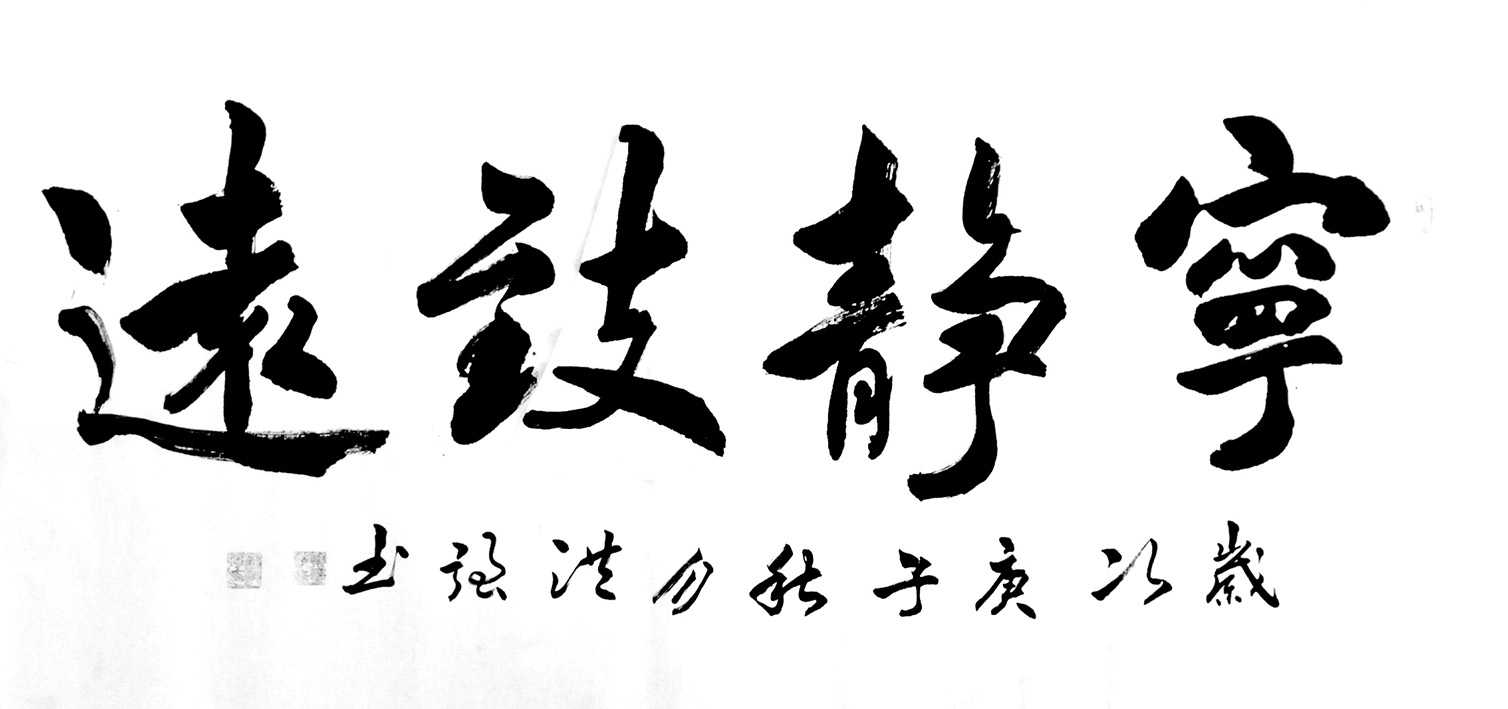 寧靜致遠
歲次庚子秋月洪強书